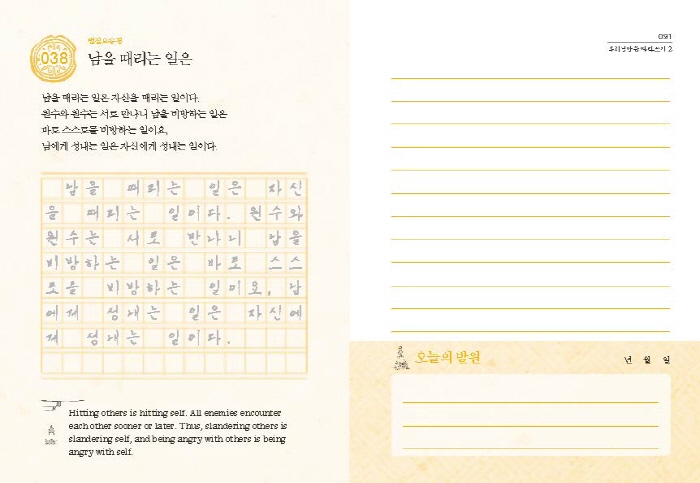 038
법집요송경
남을 때리는 일은
남을 때리는 일은 자신을 때리는 일이다.
원수와 원수는 서로 만나니 남을 비방하는 일은
바로 스스로를 비방하는 일이요,
남에게 성내는 일은 자신에게 성내는 일이다.
남을 때리는 일은 자신
을 때리는 일이다. 원수와
원수는 서로 만나니 남을
비방하는 일은 바로 스스
로를 비방하는 일이요, 남
에게 성내는 일은 자신에
게 성내는 일이다.
Hitting others is hitting self. All enemies encounter
each other sooner or later. Thus, slandering others is
slandering self, and being angry with others is being
angry with self.
091
오늘의 발원
년 월 일